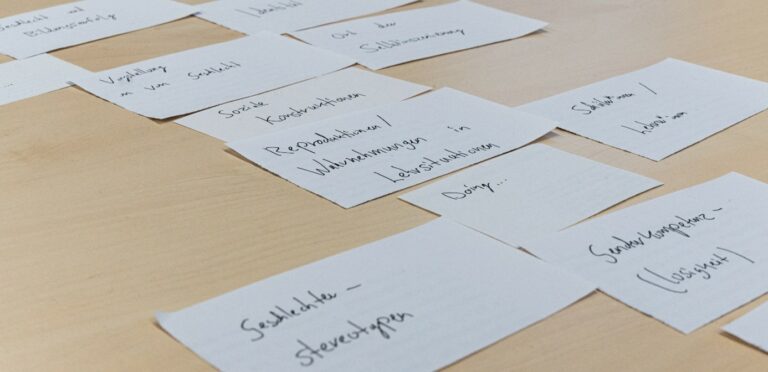 Geschlecht und
Bildungserfolg
Identität
Ort der
Selbstinszenierung
Vorstellung
en von Geschlecht
Soziale
Konstruktionen
Reproduktionen/
Wahrnehmungen in
Lehrsituationen
Schüler*innen /
Lehrer*innen
Doing...
Genderkompetenz-
(losigkeit)
Geschlechter-
stereotypen